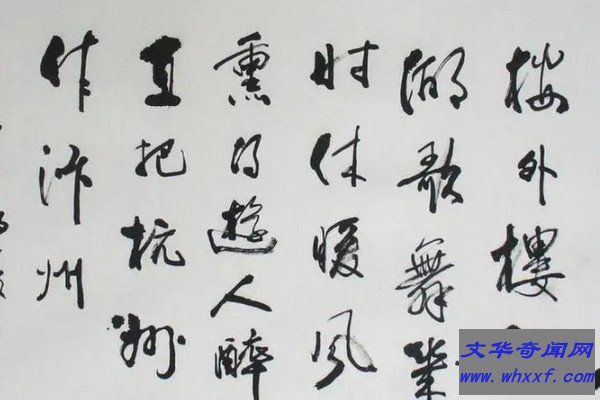 楼外樓
湖歌舞幾
时休暖风
熏得遊人醉
直把杭州
作汴州
文华奇闻网
www.whxxf.com